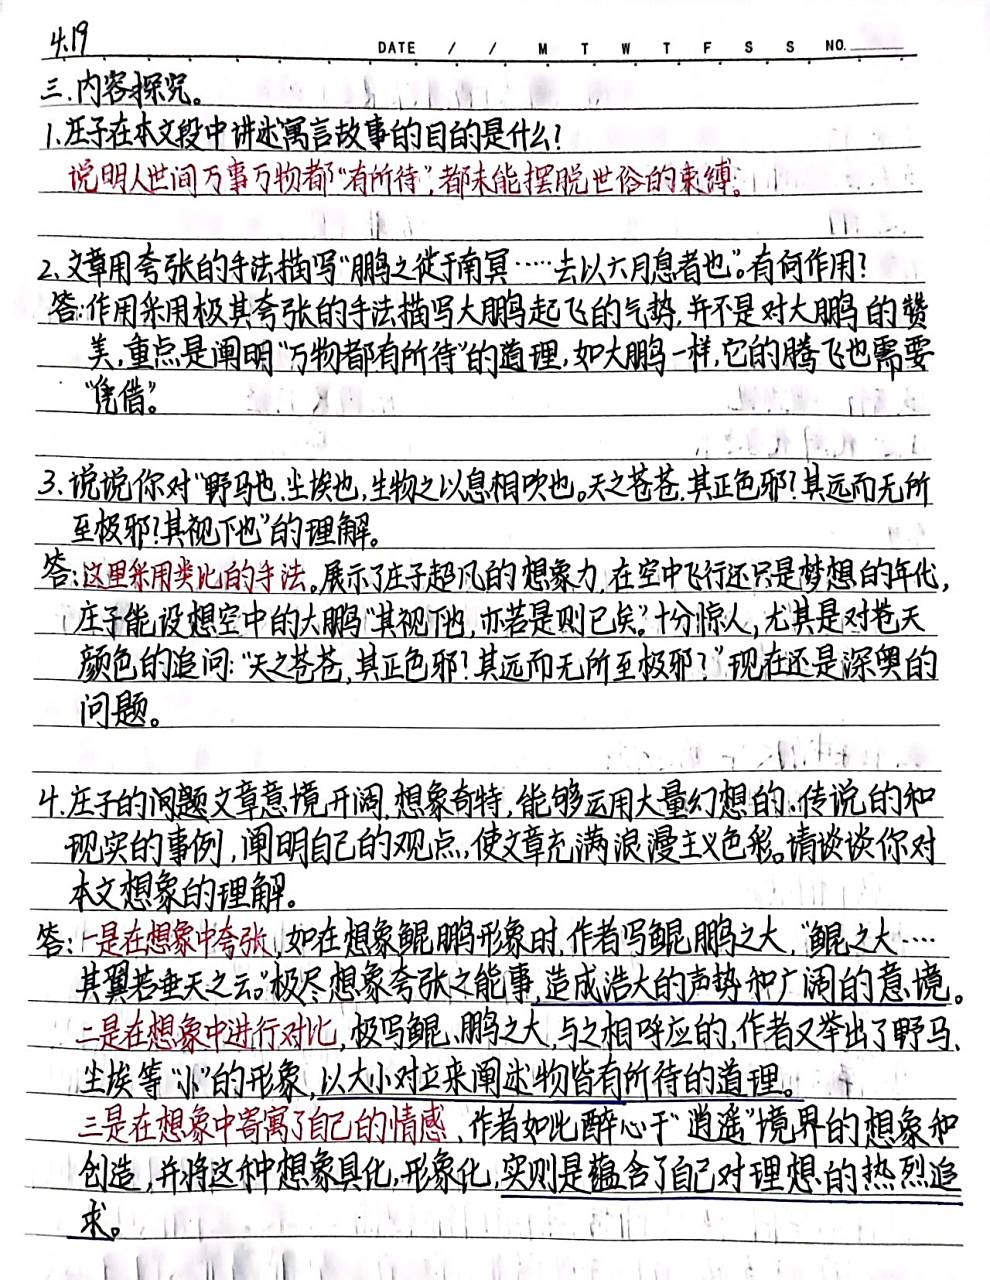 4.19
DATE / / M T W T F S S NO.
三.内容探究。
1.庄子在本文段中讲述寓言故事的目的是什么?
说明人世间万事万物都“有所待”,都未能摆脱世俗的束缚。
2.文章用夸张的手法描写“鹏之徙于南冥……去以六月息者也”。有何作用?
答:作用采用极其夸张的手法描写大鹏起飞的气势,并不是对大鹏的赞
美,重点是阐明“万物都有所待”的道理,如大鹏一样,它的腾飞也需要
“凭借”。
3.说说你对“野马也,尘埃也,生物之以息相吹也。天之苍苍,其正色邪?其远而无所
至极邪?其视下也”的理解。
答:这里采用类比的手法。展示了庄子超凡的想象力,在空中飞行还只是梦想的年代,
庄子能设想空中的大鹏“其视下也,亦若是则已矣。”十分惊人,尤其是对苍天
颜色的追问:“天之苍苍,其正色邪?其远而无所至极邪?”现在还是深奥的
问题。
4.庄子的问题文章意境开阔,想象奇特,能够运用大量幻想的、传说的和
现实的事例,阐明自己的观点,使文章充满浪漫主义色彩。请谈谈你对
本文想象的理解。
答:一是在想象中夸张,如在想象鲲鹏形象时,作者写鲲鹏之大,“鲲之大……
其翼若垂天之云。”极尽想象夸张之能事,造成浩大的声势和广阔的意境。
二是在想象中进行对比,极写鲲、鹏之大,与之相呼应的,作者又举出了野马、
尘埃等“小”的形象,以大小对立来阐述物皆有所待的道理。
三是在想象中寄寓了自己的情感,作者如此醉心于“逍遥”境界的想象和
创造,并将这种想象具化,形象化,实则是蕴含了自己对理想的热烈追
求。